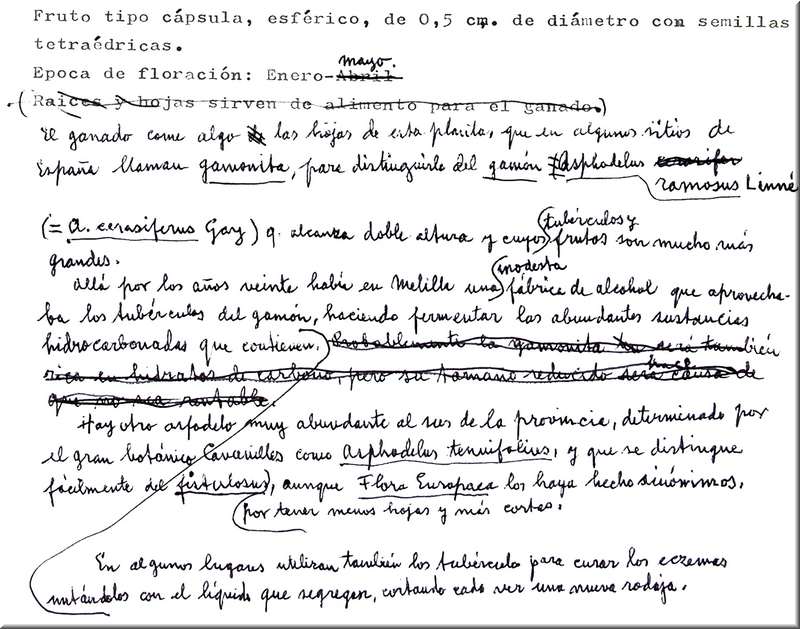 Fruto tipo cápsula, esférico, de 0,5 cm. de diámetro con semillas
tetraédricas.
mayo.
Epoca de floración: Enero-Abril
(Raices y hojas sirven de alimento para el ganado.)
El ganado come algo las hojas de esta planta, que en algunos sitios de
España llaman gamonita, para distinguirla del gamón Asphodelus cerasifer
ramosus Linné
(= A. cerasiferus Gay) q. alcanza doble altura y cuyos tubérculos y frutos son mucho más
grandes.
Allá por los años veinte había en Melilla una modesta fábrica de alcohol que aprovecha-
ba los tubérculos del gamón, haciendo fermentar las abundantes sustancias
hidrocarbonadas que contienen. Probablemente la gamonita será también
rica en hidratos de carbono, pero su tamaño reducido será causa de
hace
que no sea rentable.
Hay otro asfodelo muy abundante al sur de la provincia, determinado por
el gran botánico Cavanilles como Asphodelus tenuifolius, y que se distingue
fácilmente del fistulosus, aunque Flora Europaea los haya hecho sinónimos,
por tener menos hojas y más cortas.
En algunos lugares utilizan también los tubérculo para curar los eczemas
untándolos con el líquido que segregan, cortando cada vez una nueva rodaja.